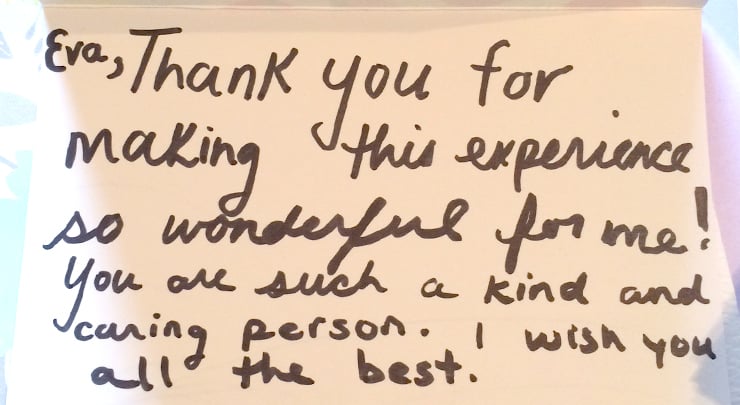 Eva, Thank you for
making this experience
so wonderful for me!
You are such a kind and
caring person. I wish you
all the best.